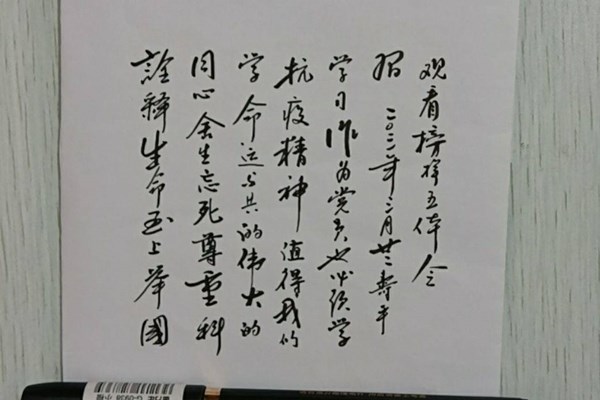 詮释生命至上举國
同心舍生忘死尊重科
学命运与共的伟大的
抗疫精神值得我们
学习作为党员也必须学
習 二〇二一年二月廿二寿平
观看榜样五体会